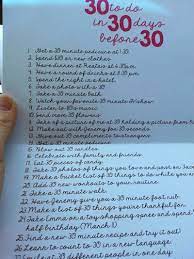 30 to do
in 30 days
before 30
1. Get a 30 minute pedicure at 1:30
2. Spend $30 on new clothes
3. Have dinner at
4. Have a round of drinks at 8:30 pm
5. Spend the night in a hotel.
6. Take a 30 minute bath
7. Watch your favorite 30 minute show
8. Listen to 30 minutes music
9. Send mom 30 flowers
10. Take a picture of me holding a picture from
11. Make out with Jeremy for 30 seconds
12. Give out 30 compliments to strangers
13.
14. Blow out 30 candles
15. Celebrate with family and friends.
16. Eat 30 pieces of candy
17. Take 30 photos of things you love and post on
18. Make a bucket list of 30 things to do while in your 30s
20. Add 30 new workouts to your routine.
21. Take a 30 minute walk
22. Have Jeremy give you a 30 minute foot rub
23. Make a list of 30 things you're thankful for.
24. Take a toy shopping spree and spend
half birthday (March 1)
25. Find a new 30 minute recipe and try it out!
26. Learn to count to 30 in a new language
30 different people in one day